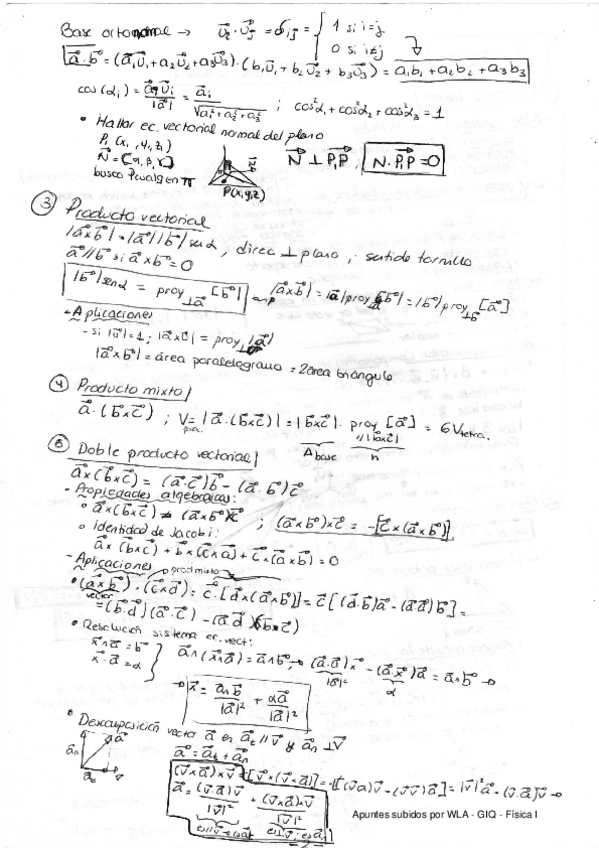 Base ortonormal → u⃗ᵢ·u⃗ⱼ = δᵢⱼ = { 1 si i=j
0 si i≠j
a⃗·b⃗ = (a₁u⃗₁+a₂u⃗₂+a₃u⃗₃)·(b₁u⃗₁+b₂u⃗₂+b₃u⃗₃) = a₁b₁+a₂b₂+a₃b₃
cos(αᵢ) = a⃗·u⃗ᵢ/|a⃗| = aᵢ/√(a₁²+a₂²+a₃²) ; cos²α₁+cos²α₂+cos²α₃=1
• Hallar ec. vectorial normal del plano
P₁(x₁, y₁, z₁)
N⃗ = (α, β, γ)
busco P cualq en π
P(x,y,z)
N⃗ ⊥ P₁P , N·P₁P=0
③ Producto vectorial
|a⃗×b⃗| = |a⃗||b⃗| sen α, direc ⊥ plano ; sentido tornillo
a⃗//b⃗ si a⃗×b⃗=0
|b⃗|senα = proy⊥a⃗ [b⃗] → |a⃗×b⃗| = |a⃗|proy⊥a⃗[b⃗] = |b⃗|proy⊥b⃗ [a⃗]
- Aplicaciones
- si |u⃗|=1; |a⃗×u⃗| = proy⊥ |a⃗|
|a⃗×b⃗| = área paralelogramo = 2área triángulo
④ Producto mixto
a⃗·(b⃗×c⃗) ; V = |a⃗·(b⃗×c⃗)| = |b⃗×c⃗|·proy//|b×c| [a⃗] = 6Vtetra.
Abase h
⑤ Doble producto vectorial
a⃗×(b⃗×c⃗) = (a⃗·c⃗)b⃗ - (a⃗·b⃗)c⃗
- Propiedades algebraicas:
• a⃗×(b⃗×c⃗) ≠ (a⃗×b⃗)×c⃗ ; (a⃗×b⃗)×c⃗ = -[c⃗×(a⃗×b⃗)]
○ identidad de Jacobi:
a⃗×(b⃗×c⃗)+b⃗×(c⃗×a⃗)+c⃗×(a⃗×b⃗)=0
- Aplicaciones prod mixto
• (a⃗×b⃗)·(c⃗×d⃗) = c⃗·[d⃗×(a⃗×b⃗)] = c⃗[(d⃗·b⃗)a⃗ - (d⃗·a⃗)b⃗] =
vector
= (b⃗·d⃗)(a⃗·c⃗) - (a⃗·d⃗)(b⃗·c⃗)
• Resolución sistema ec. vect:
x⃗∧a⃗ = b⃗
x⃗·a⃗ = α
a⃗∧(x⃗∧a⃗) = a⃗∧b⃗ → (a⃗·a⃗)x⃗ - (a⃗·x⃗)a⃗ = a⃗∧b⃗ →
|a⃗|² α
→ x⃗ = a⃗∧b⃗/|a⃗|² + αa⃗/|a⃗|²
• Descomposición vector a⃗ en a⃗t // v⃗ y a⃗n ⊥ v⃗
a⃗ = a⃗t + a⃗n
(v⃗×a⃗)×v⃗ = -[v⃗×(v⃗×a⃗)] = -[(v⃗a⃗)v⃗ - (v⃗v⃗)a⃗] = |v⃗|²a⃗ - (v⃗·a⃗)v⃗ →
a⃗ = (v⃗·a⃗)v⃗/|v⃗|² + (v⃗×a⃗)×v⃗/|v⃗|²
Apuntes subidos por WLA - GIQ - Física I